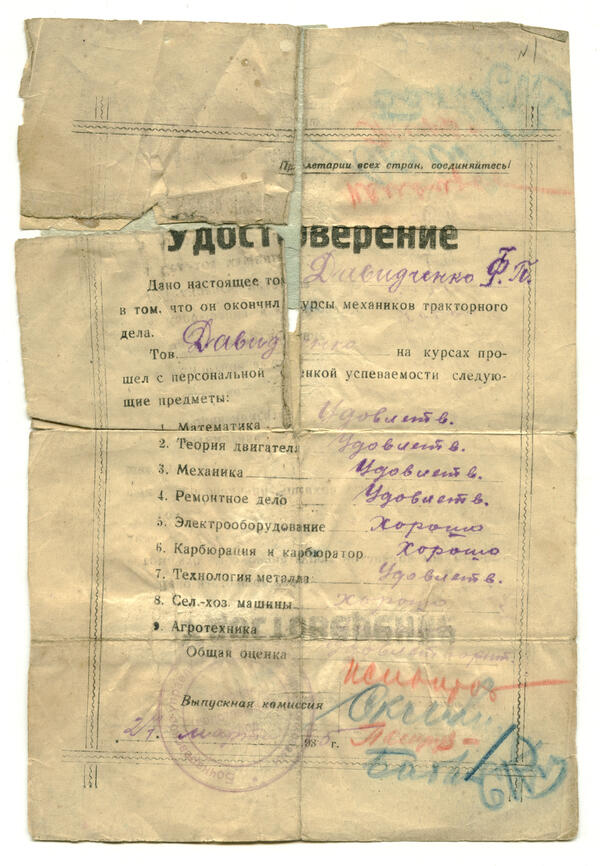 Пролетарии всех стран, соединяйтесь!
Удостоверение
Дано настоящее тов. Давидченко Ф.П.
в том, что он окончил курсы механиков тракторного
дела.
Тов. Давидченко на курсах про-
шел с персональной оценкой успеваемости следую-
щие предметы:
1. Математика Удовлетв.
2. Теория двигателя Удовлетв.
3. Механика Удовлетв.
4. Ремонтное дело Удовлетв.
5. Электрооборудование хорошо
6. Карбюрация и карбюратор хорошо
7. Технология металла Удовлетв.
8. Сел.-хоз. машины хорошо
9. Агротехника
Общая оценка
Выпускная комиссия
27 марта 1935 г.